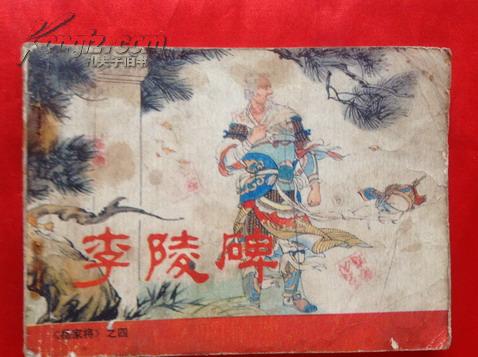 kongfz.com
孔夫子旧书
李陵碑
《杨家将》之四